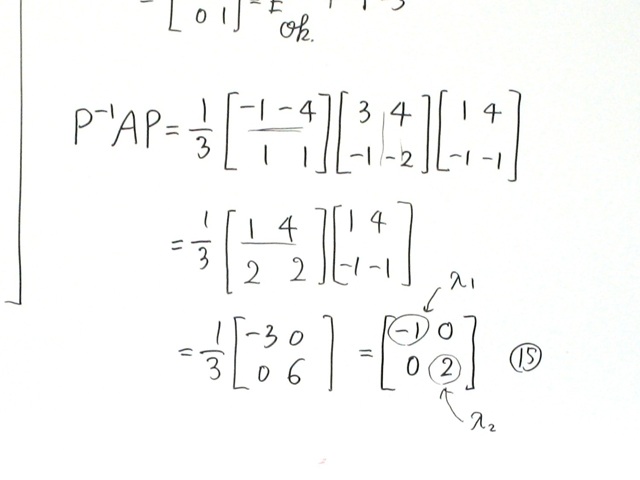 = [ 0 1 ] = E
Ok.
P⁻¹AP = 1/3 [ -1 -4 ; 1 1 ] [ 3 4 ; -1 -2 ] [ 1 4 ; -1 -1 ]
= 1/3 [ 1 4 ; 2 2 ] [ 1 4 ; -1 -1 ]
λ1
= 1/3 [ -3 0 ; 0 6 ] = [ -1 0 ; 0 2 ] ⑮
λ2